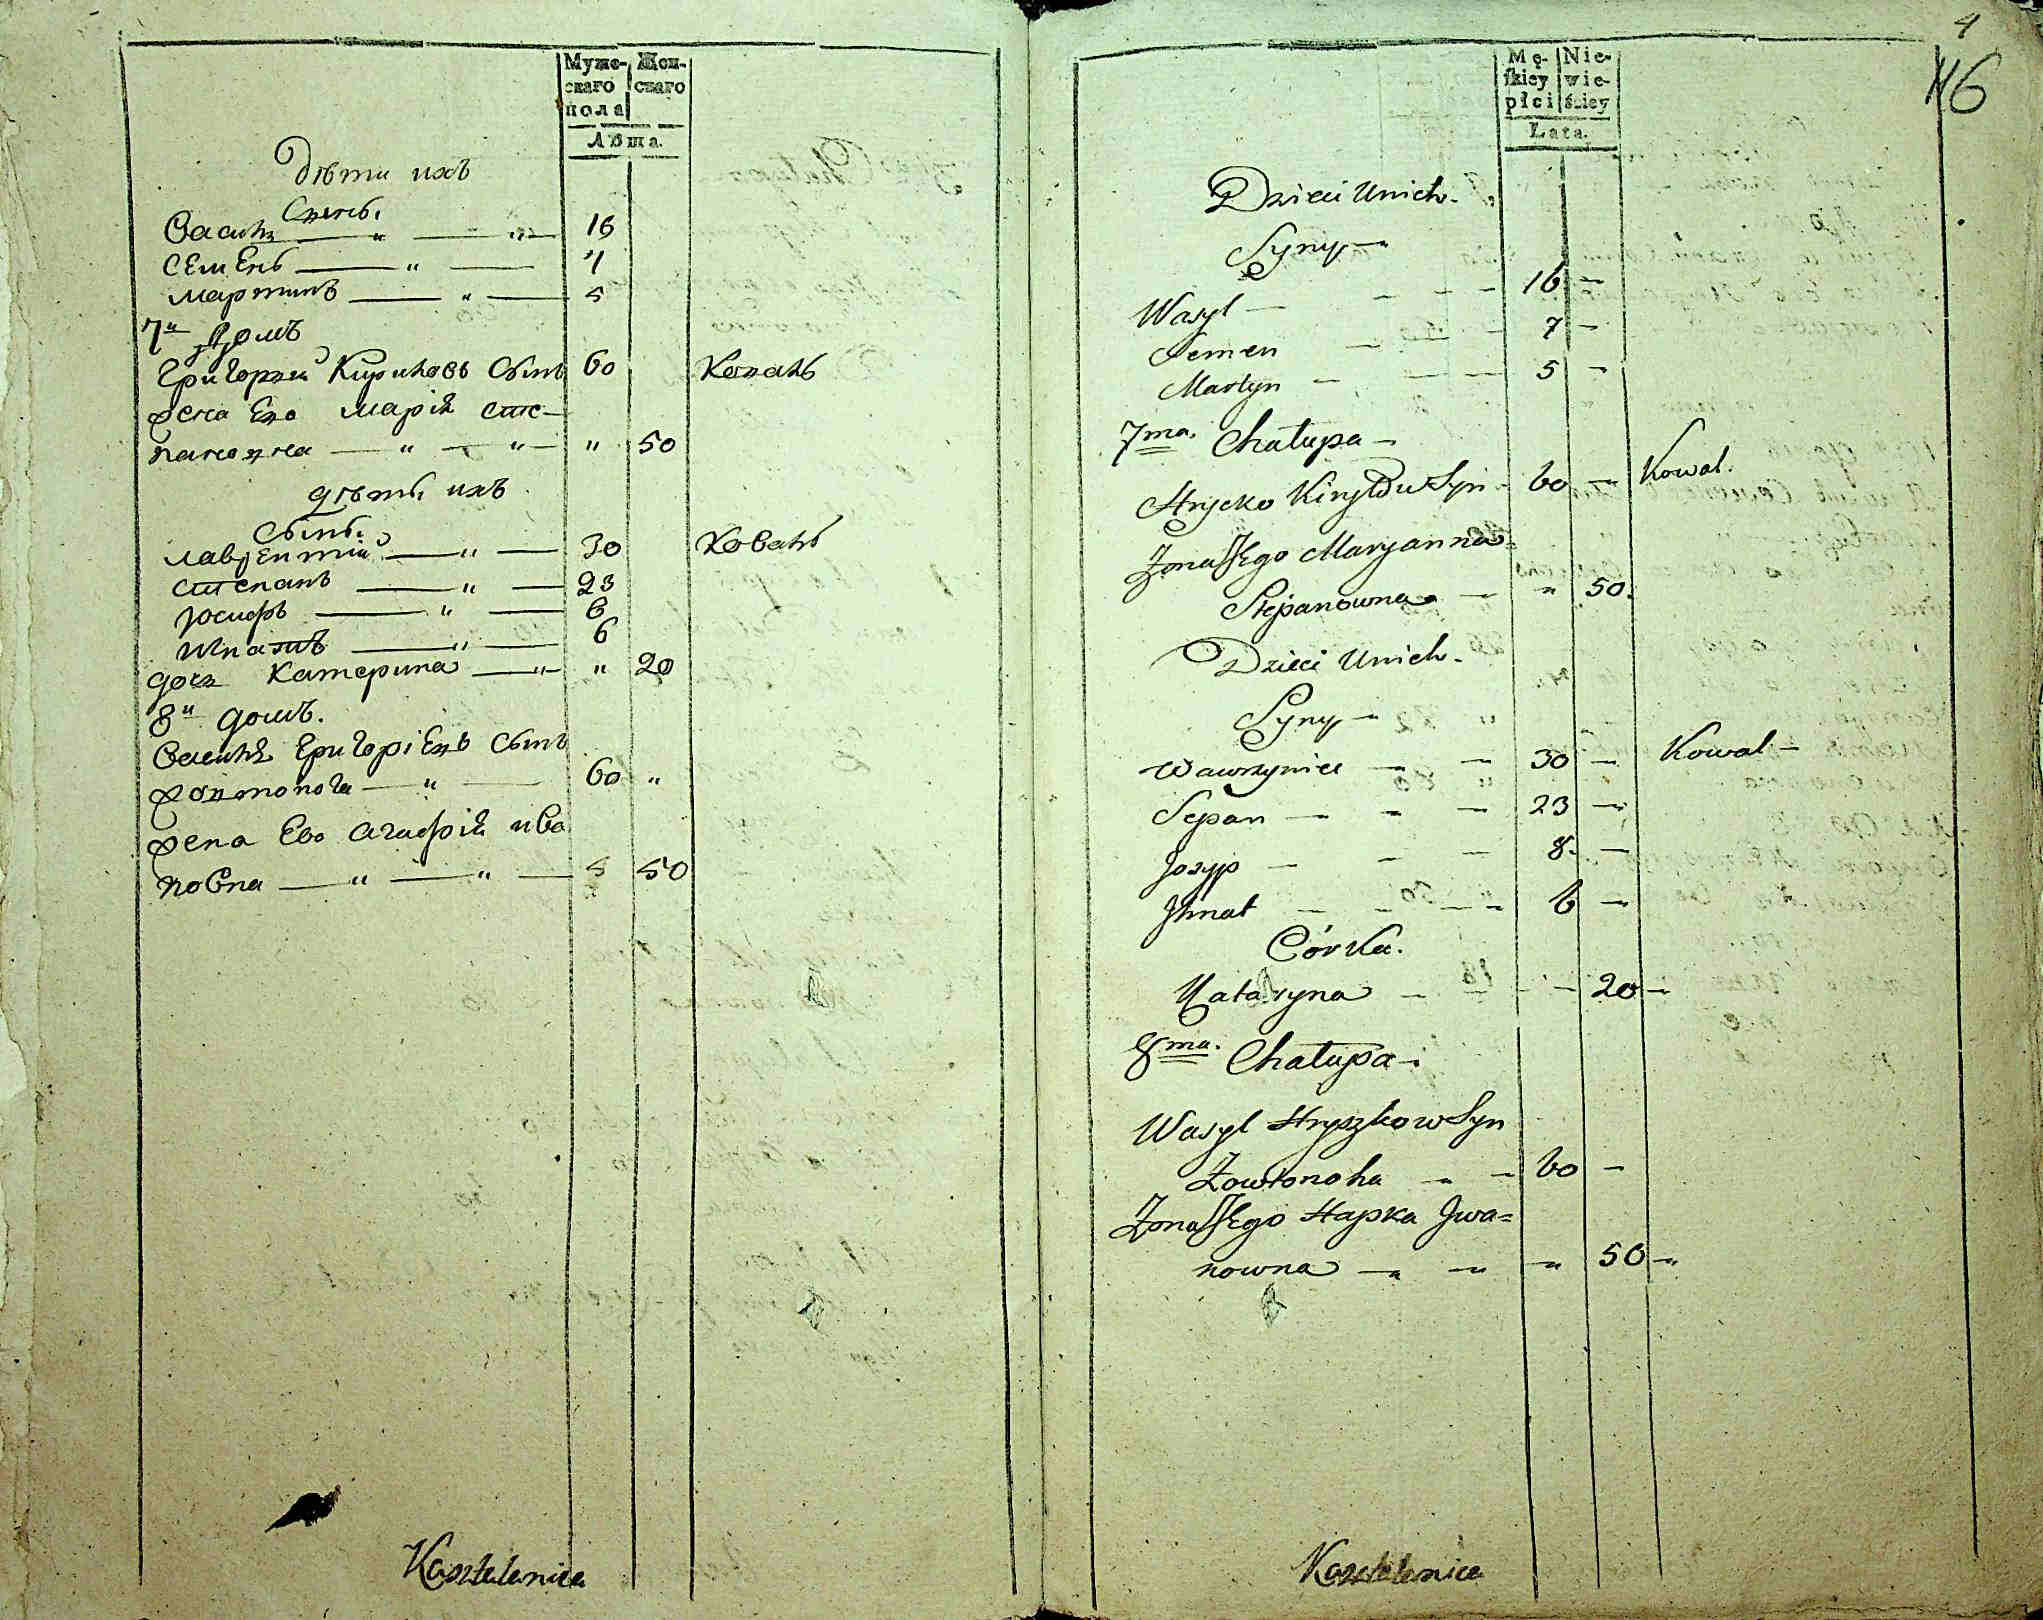 Муже-
скаго
пола
Жен-
скаго
Лѣта.
Дѣти ихъ
Сыны
Василь — " — " — 16
Семенъ — " — 7
Мартинъ — " — 5
7й Домъ
Григорий Кириловъ Сынъ 60 Коваль
Жена Ево Мария Сте-
пановна — " — " — " 50
Дѣты ихъ
Сыны
Лаврентий — " — 30 Коваль
Степанъ — " — 23
Юсифъ — " — 8
Игнатъ — " — 6
Дочь Катерина — " — " 20
8й Домъ.
Василь Григоріевъ Сынъ
Жовтонога — " — 60 "
Жена Ево Агафія Ива
новна — " — " — 50
Kasztelanica
4
Mę-
skiey
płci
Nie-
wie-
ściey
Lata.
116
Dzieci Unich.
Syny
Wasyl — 16 —
Semen — 7 —
Martyn — 5 —
7ma. Chałupa —
Hrycko Kiryłow Syn — 60 — Kowal.
Żona Jego Maryanna
Stepanowna — " 50.
Dzieci Unich.
Syny —
Wawrzyniec — 30 — Kowal —
Stepan — 23 —
Jozyp — 8. —
Ihnat — 6 —
Córka.
Kataryna — 20 —
8ma. Chałupa —
Wasyl Hryszkow Syn
Żowtonoha — 60 —
Żona Jego Hapka Jwa=
nowna — " — 50 —
Kasztelanica